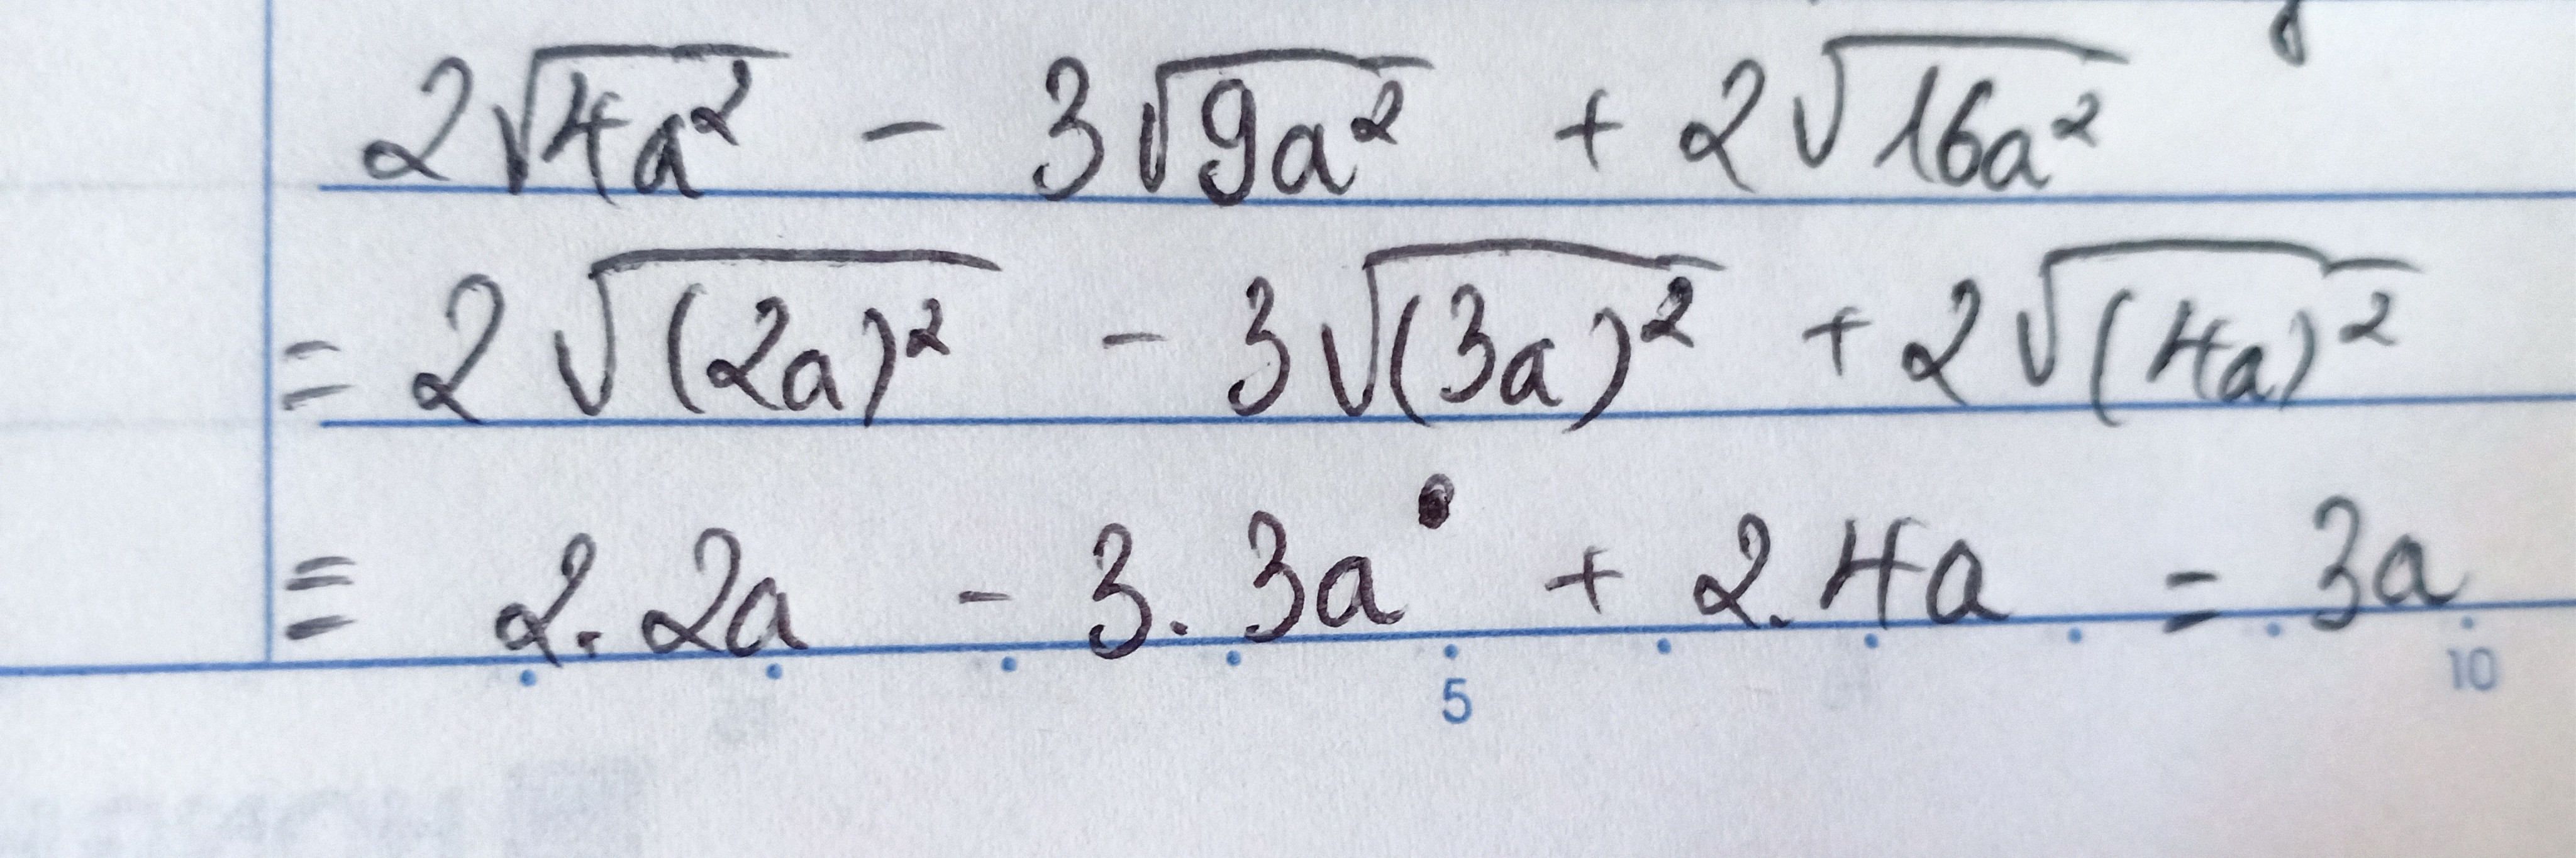 2√4a² - 3√9a² + 2√16a²
= 2√(2a)² - 3√(3a)² + 2√(4a)²
= 2.2a - 3.3a + 2.4a = 3a
5 10